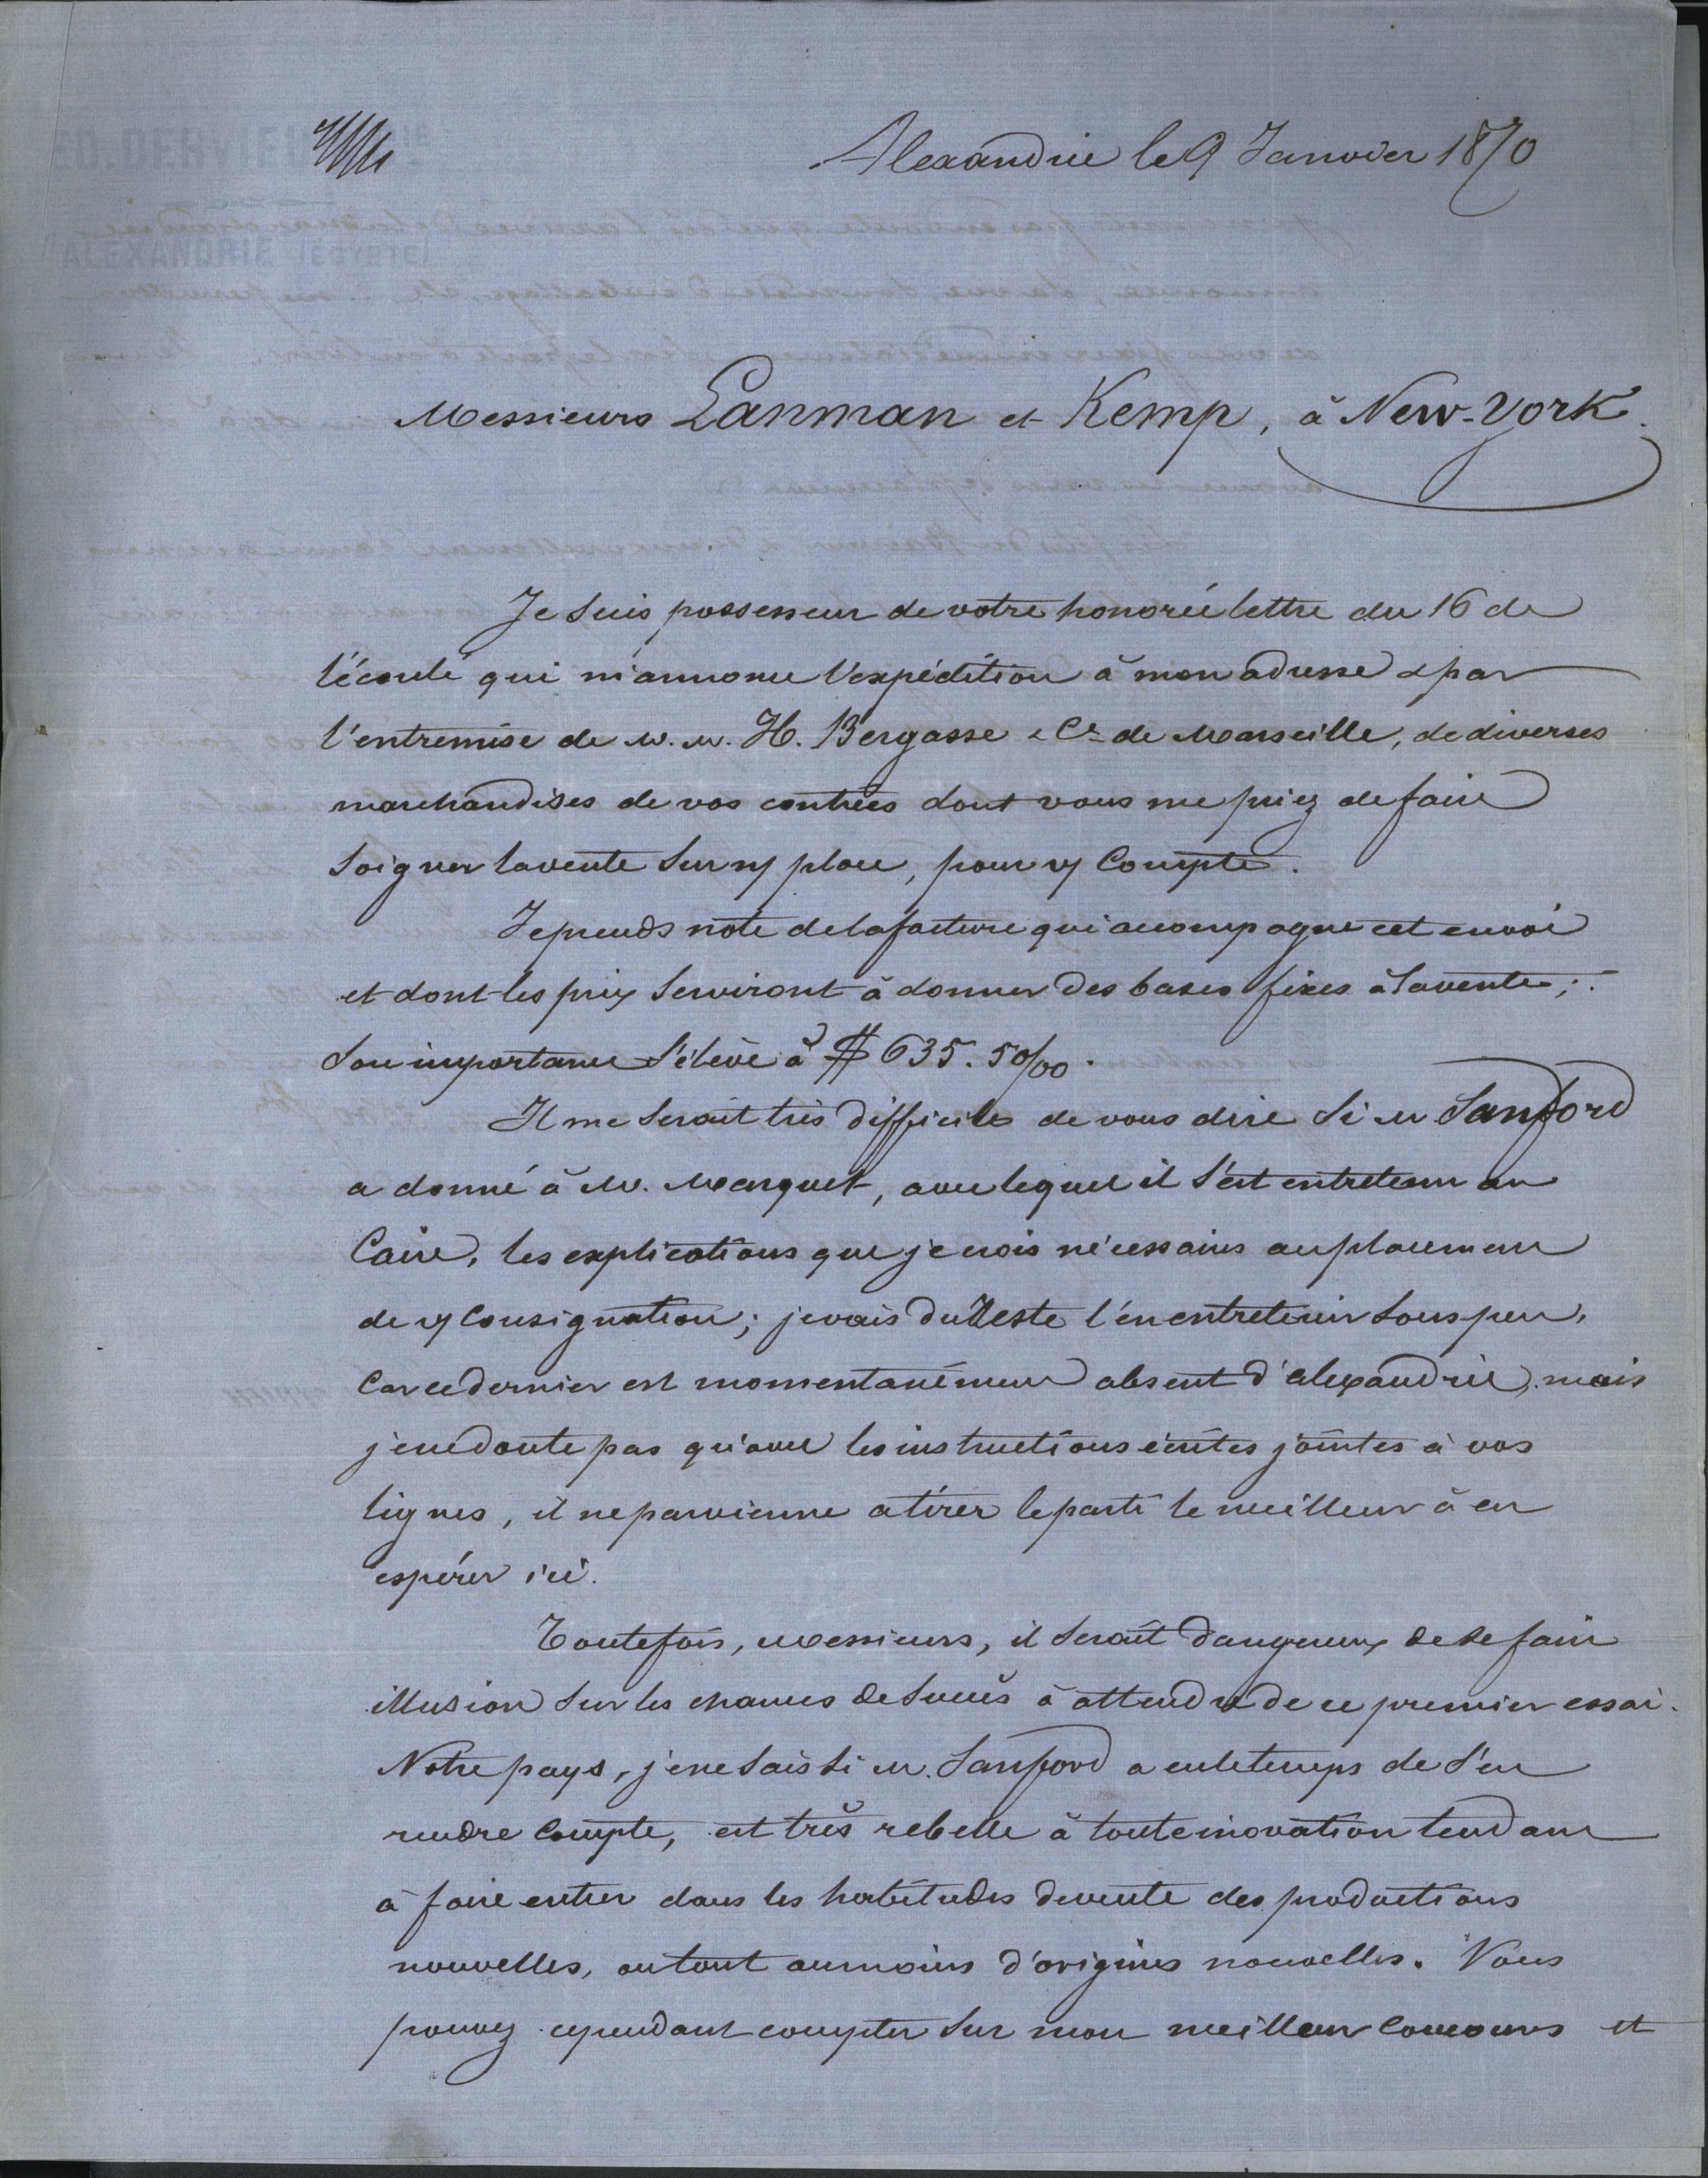 ED. DERVIEU & CIE
ALEXANDRIE (EGYPTE)
Alexandrie le 9 Janvier 1870
Messieurs Lanman et Kemp, à New-York.
Je suis possesseur de votre honorée lettre du 16 de
l'écoulé qui m'annonce l'expédition à mon adresse & par
l'entremise de M.M. H. Bergasse & Cie de Marseille, de diverses
marchandises de vos contrées dont vous me priez de faire
soigner la vente sur n/ place, pour v/ Compte.
Je prends note de la facture qui accompagne cet envoi
et dont les prix serviront à donner des bases fixes à la vente;
son importance s'élève à $ 635.50/00.
Il me serait très difficile de vous dire si M Sanford
a donné à M. Marquet, avec lequel il s'est entretenu au
Caire, les explications que je crois nécessaires au placement
de v/ Consignation; je vais du Reste l'en entretenir sous peu,
car ce dernier est momentanément absent d'Alexandrie, mais
je ne doute pas qu'avec les instructions écrites jointes à vos
lignes, il ne parvienne a tirer le parti le meilleur à en
espérer ici.
Toutefois, Messieurs, il serait dangereux de se faire
illusion sur les chances de succès à attendre de ce premier essai.
Notre pays, je ne sais si M. Sanford a eu le temps de s'en
rendre compte, est très rebelle à toute inovation tendant
à faire entrer dans les habitudes de vente des productions
nouvelles, ou tout au moins d'origines nouvelles. Vous
pouvez cependant compter sur mon meilleur concours et